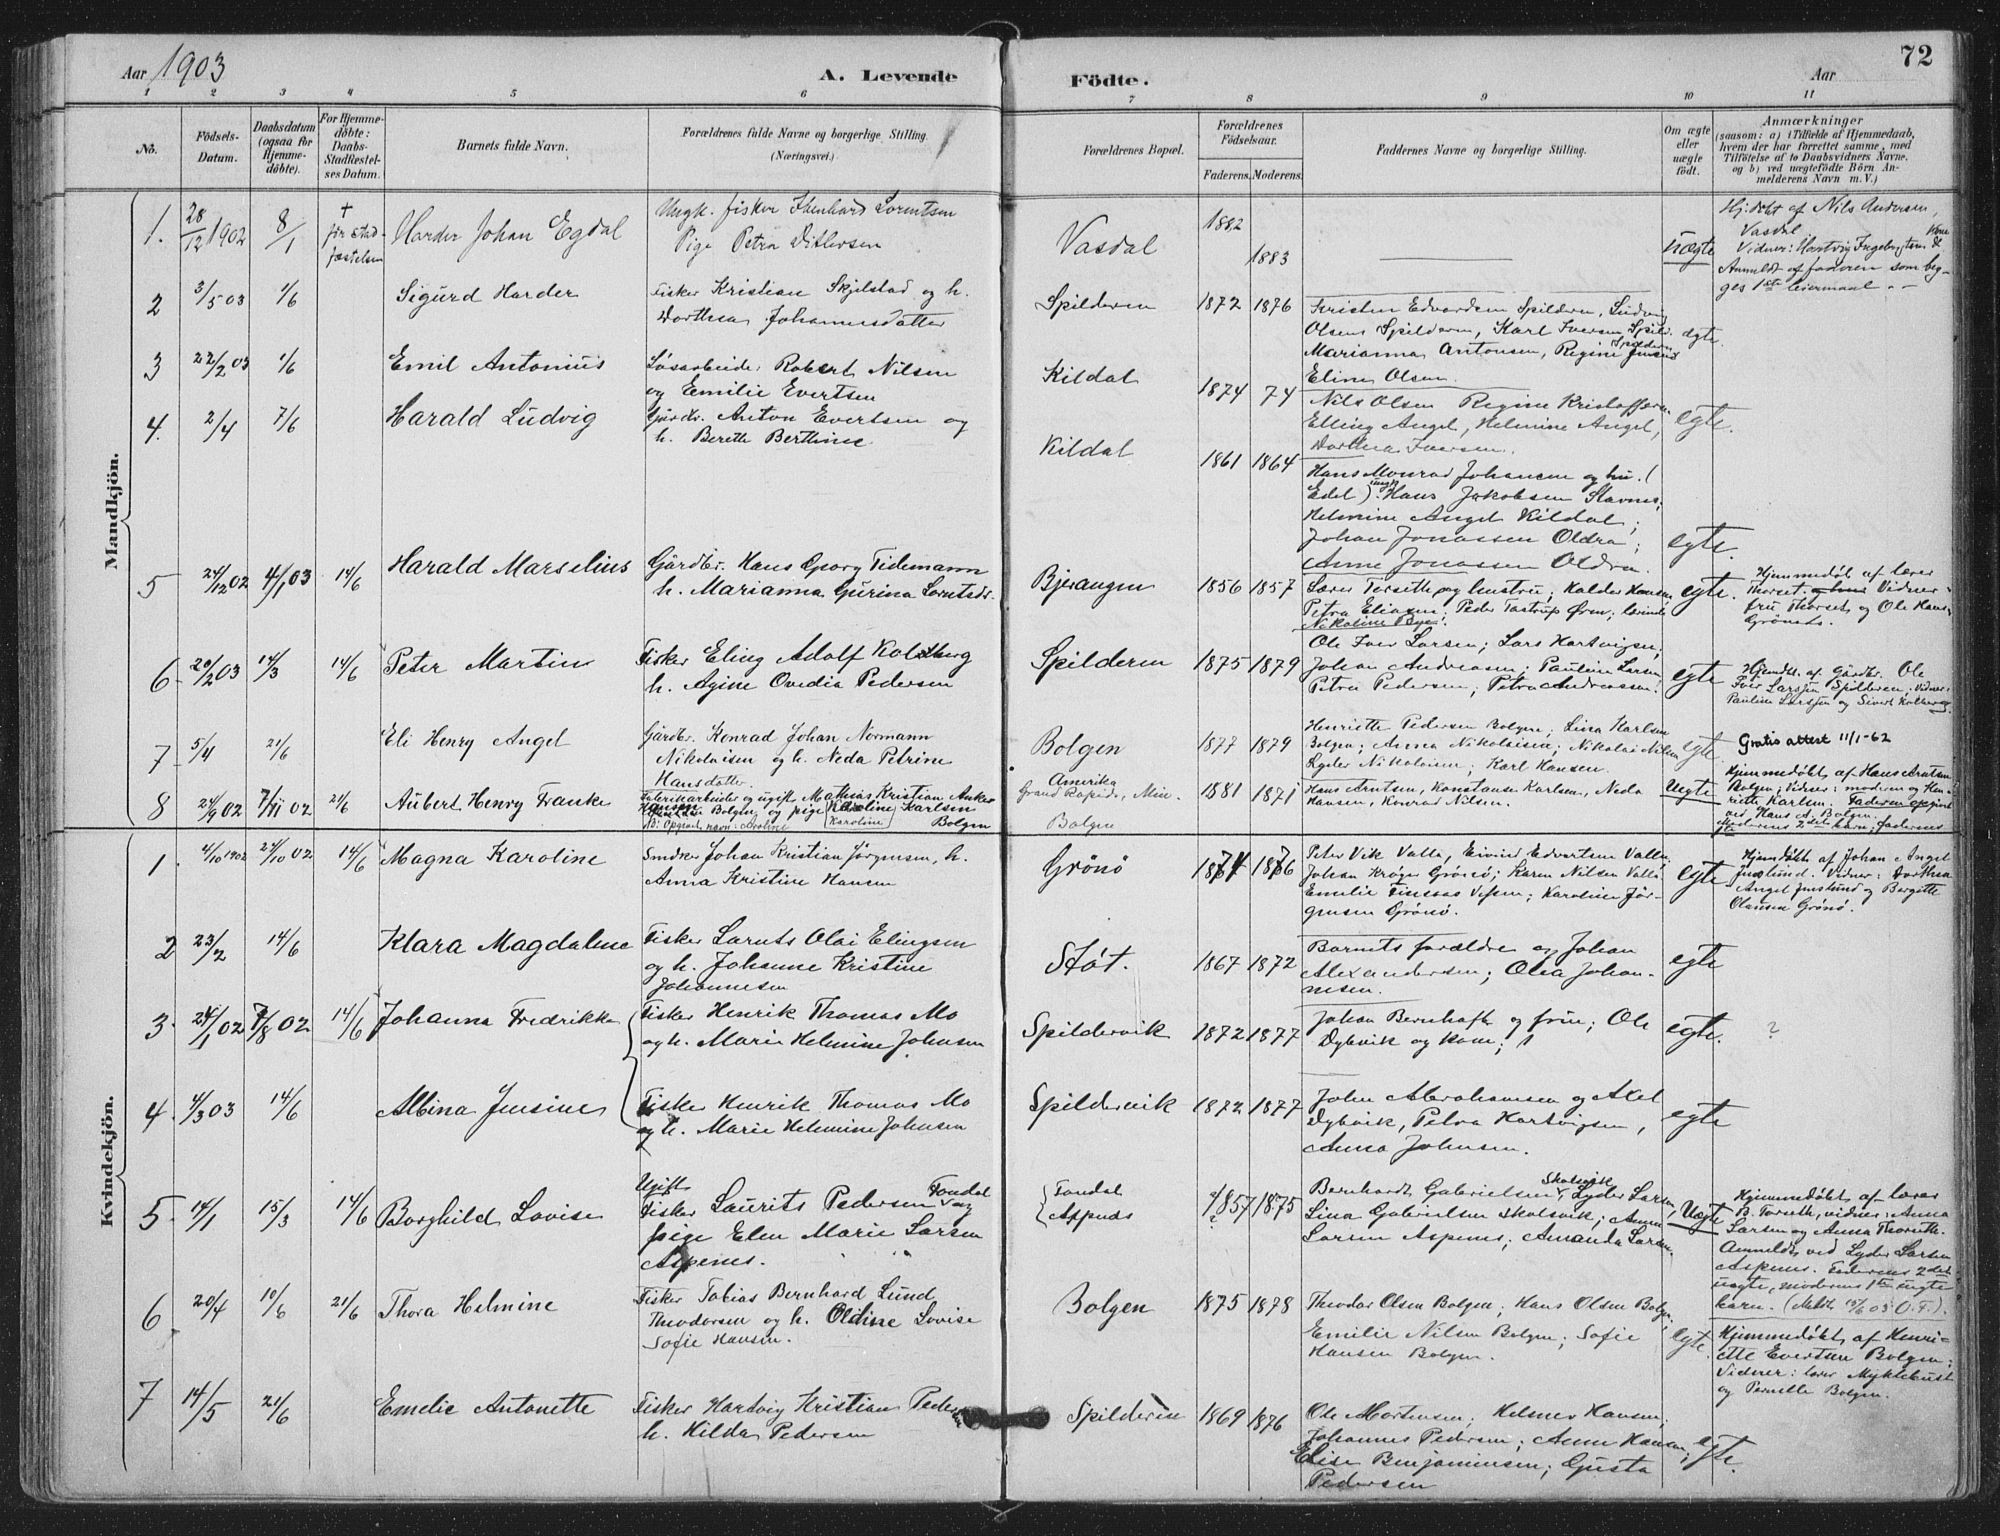 Aar 1903
A. Levende
Födte.
Aar
72
1 2 3 4 5 6 7 8 9 10 11
No.
Födsels-
Datum.
Daabsdatum
(ogsaa for
Hjemme-
döbte).
For Hjemme-
döbte:
Daabs-
Stadfæstel-
ses Datum.
Barnets fulde Navn.
Forældrenes fulde Navne og borgerlige Stilling.
(Næringsvei.)
Forældrenes Bopæl.
Forældrenes
Födselsaar.
Faderens. Moderens.
Faddernes Navne og borgerlige Stilling.
Om ægte
eller
uægte
födt.
Anmærkninger
(saasom: a) i Tilfælde af Hjemmedaab,
hvem der har forrettet samme, med
Tilföielse af to Daabsvidners Navne.
og b) ved uægtefödte Börn An-
melderens Navn m. V.)
Mandkjön.
1. 28/12 1902 8/1 + før stad-
fæstelsen
Harder Johan Egdal
Ungk. fisker Ehenhard Lorentsen
Pige Petra Ditlefsen
Vasdal
1882
1883
Uægte
Hj.døbt af Nils Andersen,
Vasdal
Vidner: Hartvig Ingebrigtsen &
Anmeldt af faderen som beg-
ges 1ste leiermaal.
2 3/5 03 1/6
Sigurd Harder
Fisker Kristian Skjelstad og h.
Dorthea Johannesdatter
Spilderen
1872 1876
Kristen Edvardsen Spilderen, Ludvig
Olsen Spilderen, Karl Iversen Spild.
Marianna Antonsen, Regine Jensen Spilderen
Eline Olsen.
ægte.
3 22/2 03 1/6
Emil Antonius
Løsarbeider Robert Nilsen
og Emilie Evertsen
Kildal
1874 74
Nils Olsen Regine Kristoffersen
Elling Angel, Helmine Angel,
Dorthea Iversen.
egte.
4. 2/4 7/6
Harald Ludvig
Gårdbr. Anton Evertsen og
h. Berette Berthine
Kildal
1861 1864
Hans Monrad Johansen og hu. (
Edel) ungk Hans Jakobsen Stavnes;
Helmine Angel Kildal;
Johan Jonassen Oldra;
Anne Jonassen Oldra.
egte.
5 24/12 02 4/1 03 14/6
Harald Marselius
Gårdbr. Hans Georg Tidemann
h. Marianna Gurina Lorntsdr.
Bjerangen
1856 1857
Lærer Torseth og hustru; Kalder Hansen
Petra Eliasen; Peder Tostrup Øren;
Nikoline Bye.
egte.
Hjemmedøbt af lærer
Thorset. Vidner:
fru Thorset og Ole Hans.
Grönets.
6 20/2 03 14/3 14/6
Peter Martin
Fisker Eling Adolf Kolsberg
h. Agine Ovedia Pedersen
Spilderen
1875 1879
Ole Iver Larsen; Lars Hartvigsen;
Johan Andreasen; Pauline Larsen
Petra Pedersen; Petra Andreassen.
egte
Hjemdøbt af Gårdbr. Ole
Iver Larsen Spilderen; Vidner:
Pauline Larsen og Sivert Kolberg
7 5/4 21/6
Eli Henry Angel
Gårdbr. Konrad Johan Normann
Nikolaisen og h. Neda Petrine
Hansdatter
Bolgen
1877 1879
Henriette Pedersen Bolgen; Lina Karlsen
Bolgen; Anna Nikolaisen; Nikolai Nilsen
Lyder Nikolaisen; Karl Hansen.
egte.
Gratis attest 11/1-62
8 24/9 02 7/11 02 21/6
Aubert Henry Franke
Fabrikarbeider og ugift Mathias Kristian Anker
Hansen Bolgen og pige Karoline Karlsen
Bolgen
Amerika
Grand Rapids, Min.
Bolgen
1881 1871
Hans Arntsen, Konstanse Karlsen, Neda
Hansen, Konrad Nilsen.
Uegte
Hjemmedøbt af Hans Arntsen
Bolgen; Vidner: moderen og Hen-
riette Karlsen. Faderen opgivet
ved Hans A. Bolgen.
Moderens 2det barn; faderens
Kvindekjön.
1. 4/10 1902 24/10 02 14/6
Magna Karoline
Smdrer Johan Kristian Jörgensen, h.
Anna Kristine Hansen
Grönö
1874 1876
Peter Vik Valla, Eivind Edvartsen Valla;
Johan Kröger Grönö; Karen Nilsen Valla
Emelie Vefsen; Karoline Jør-
gensen Grönö.
egte
Hjemdøbt af Johan Angel
Jenslund. Vidner: Dorthea
Angel Jenslund og Bergitte
Olausen Grönö.
2 23/2 14/6
Klara Magdalene
Fisker Lornts Olai Elingsen
og h. Johanne Kristine
Johannesen
Støt.
1867 1872
Barnets forældre og Johan
Alexandersen; Olea Johan-
nesen.
egte
3. 24/1 02 7/8 02 14/6
Johanna Fredrikke
Fisker Henrik Thomas Mo
og h. Marie Helmine Johnsen
Spildervik
1872 1877
Johan Bernhoft og frue; Ole
Dybvik og kone;
egte.
?
4. 4/3 03 14/6
Albina Jensine
Fisker Henrik Thomas Mo
og h. Marie Helmine Johnsen
Spildervik
1872 1877
John Abrahamsen og Axel
Dybvik, Petra Hartvigsen,
Anna Johnsen.
egte
5. 14/1 15/3 14/6
Borghild Lovise
Ugift
Fisker Laurits Pedersen Tondal og
pige Elen Marie Larsen
Aspenes.
Tondal
Aspenes
1857 1875
Bernhardt Gabrielsen Skolsvik, Lyder Larsen,
Lina Gabrielsen Skolsvik; Anna
Larsen Aspenes; Amanda Larsen,
Uægte
Hjemmedøbt af lærer
B. Torseth, vidner: Anna
Larsen og Anna Thorseth.
Anmeldt ved Lyder Larsen
Aspenes. Faderens 2det
uegte, moderens 1ste uegte
barn.
6 20/4 10/6 21/6
Thora Helmine
Fisker Tobias Bernhard Lund
Theodorsen og h. Oldine Lovise
Sofie Hansen.
Bolgen
1875 1878
Theodor Olsen Bolgen; Hans Olsen Bolgen,
Emelie Nilsen Bolgen; Sofie
Hansen Bolgen.
egte.
Hjemmedøbt af Henri-
ette Evertsen Bolgen;
Vidner: lærer Myklebust
og Pernelle Bolgen.
7 14/5 21/6
Emelie Antonette
Fisker Hartvig Kristian Peder
h. Hilda Pedersen
Spilderen
1869 1876
Ole Mortensen; Helmer Hansen,
Johannes Pedersen; Anna Hansen;
Elise Benjaminsen; Gusta
Pedersen
egte.